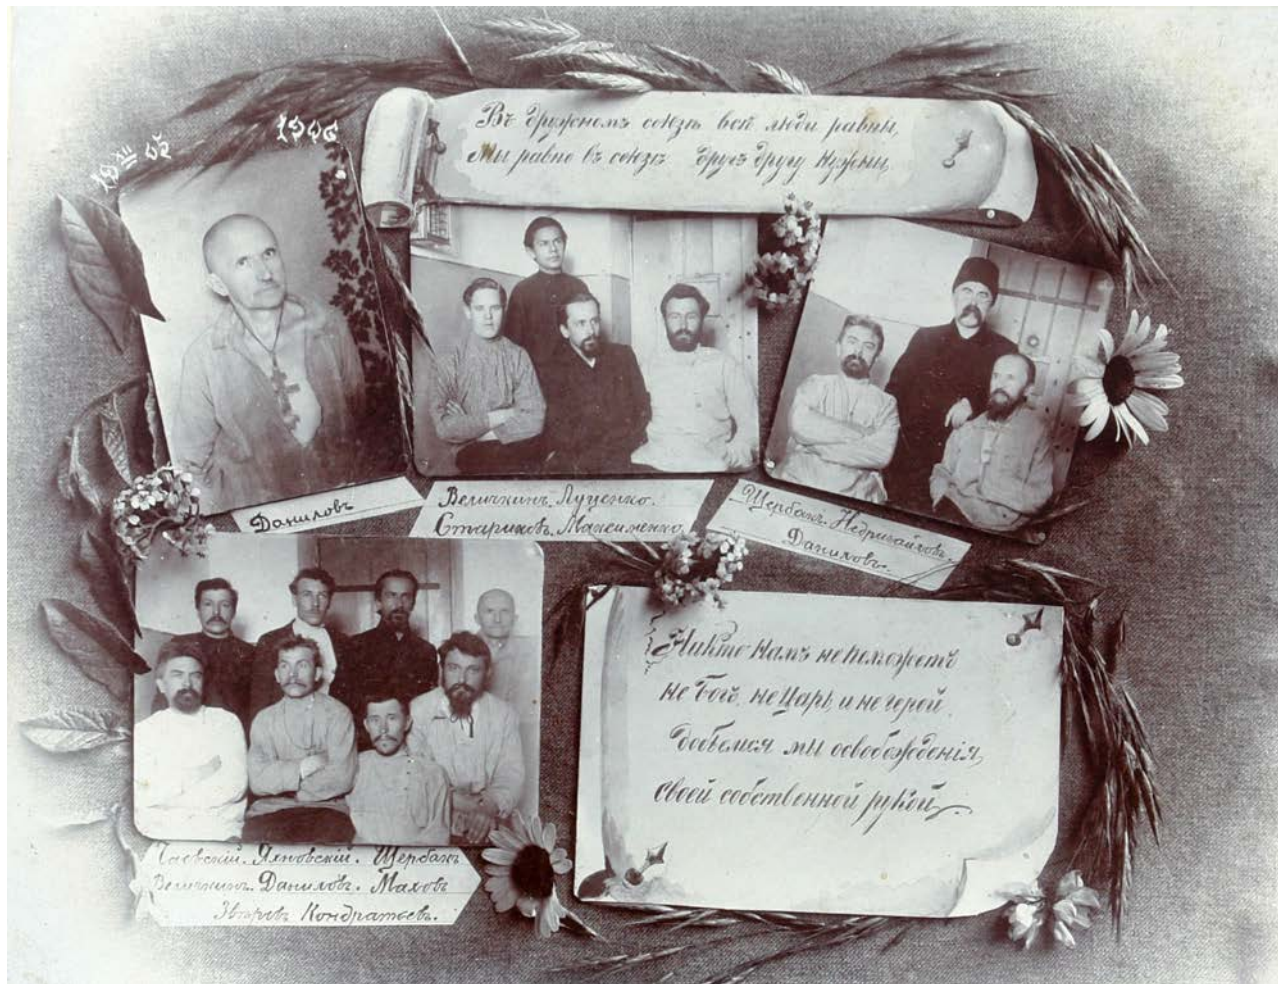 19 XII 05
1906
Въ дружномъ союзѣ всѣ люди равны,
Мы равно въ союзѣ другъ другу нужны,
Даниловъ
Величкинъ. Луценко.
Стариковъ. Максименко.
Щербакъ. Недригайловъ.
Даниловъ.
Никто намъ не поможетъ
не Богъ, не Царь и не герой
добьемся мы освобожденія,
своей собственной рукой
Яхновскій. Щербакъ
Величкинъ. Даниловъ. Маховъ
Кондратьевъ.